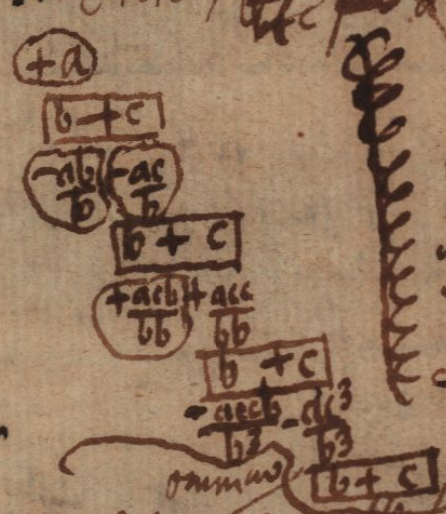 +a
b + c
-ab/b -ac/b
b + c
+acb/bb +acc/bb
b + c
-accb/b3 -ac3/b3
b + c